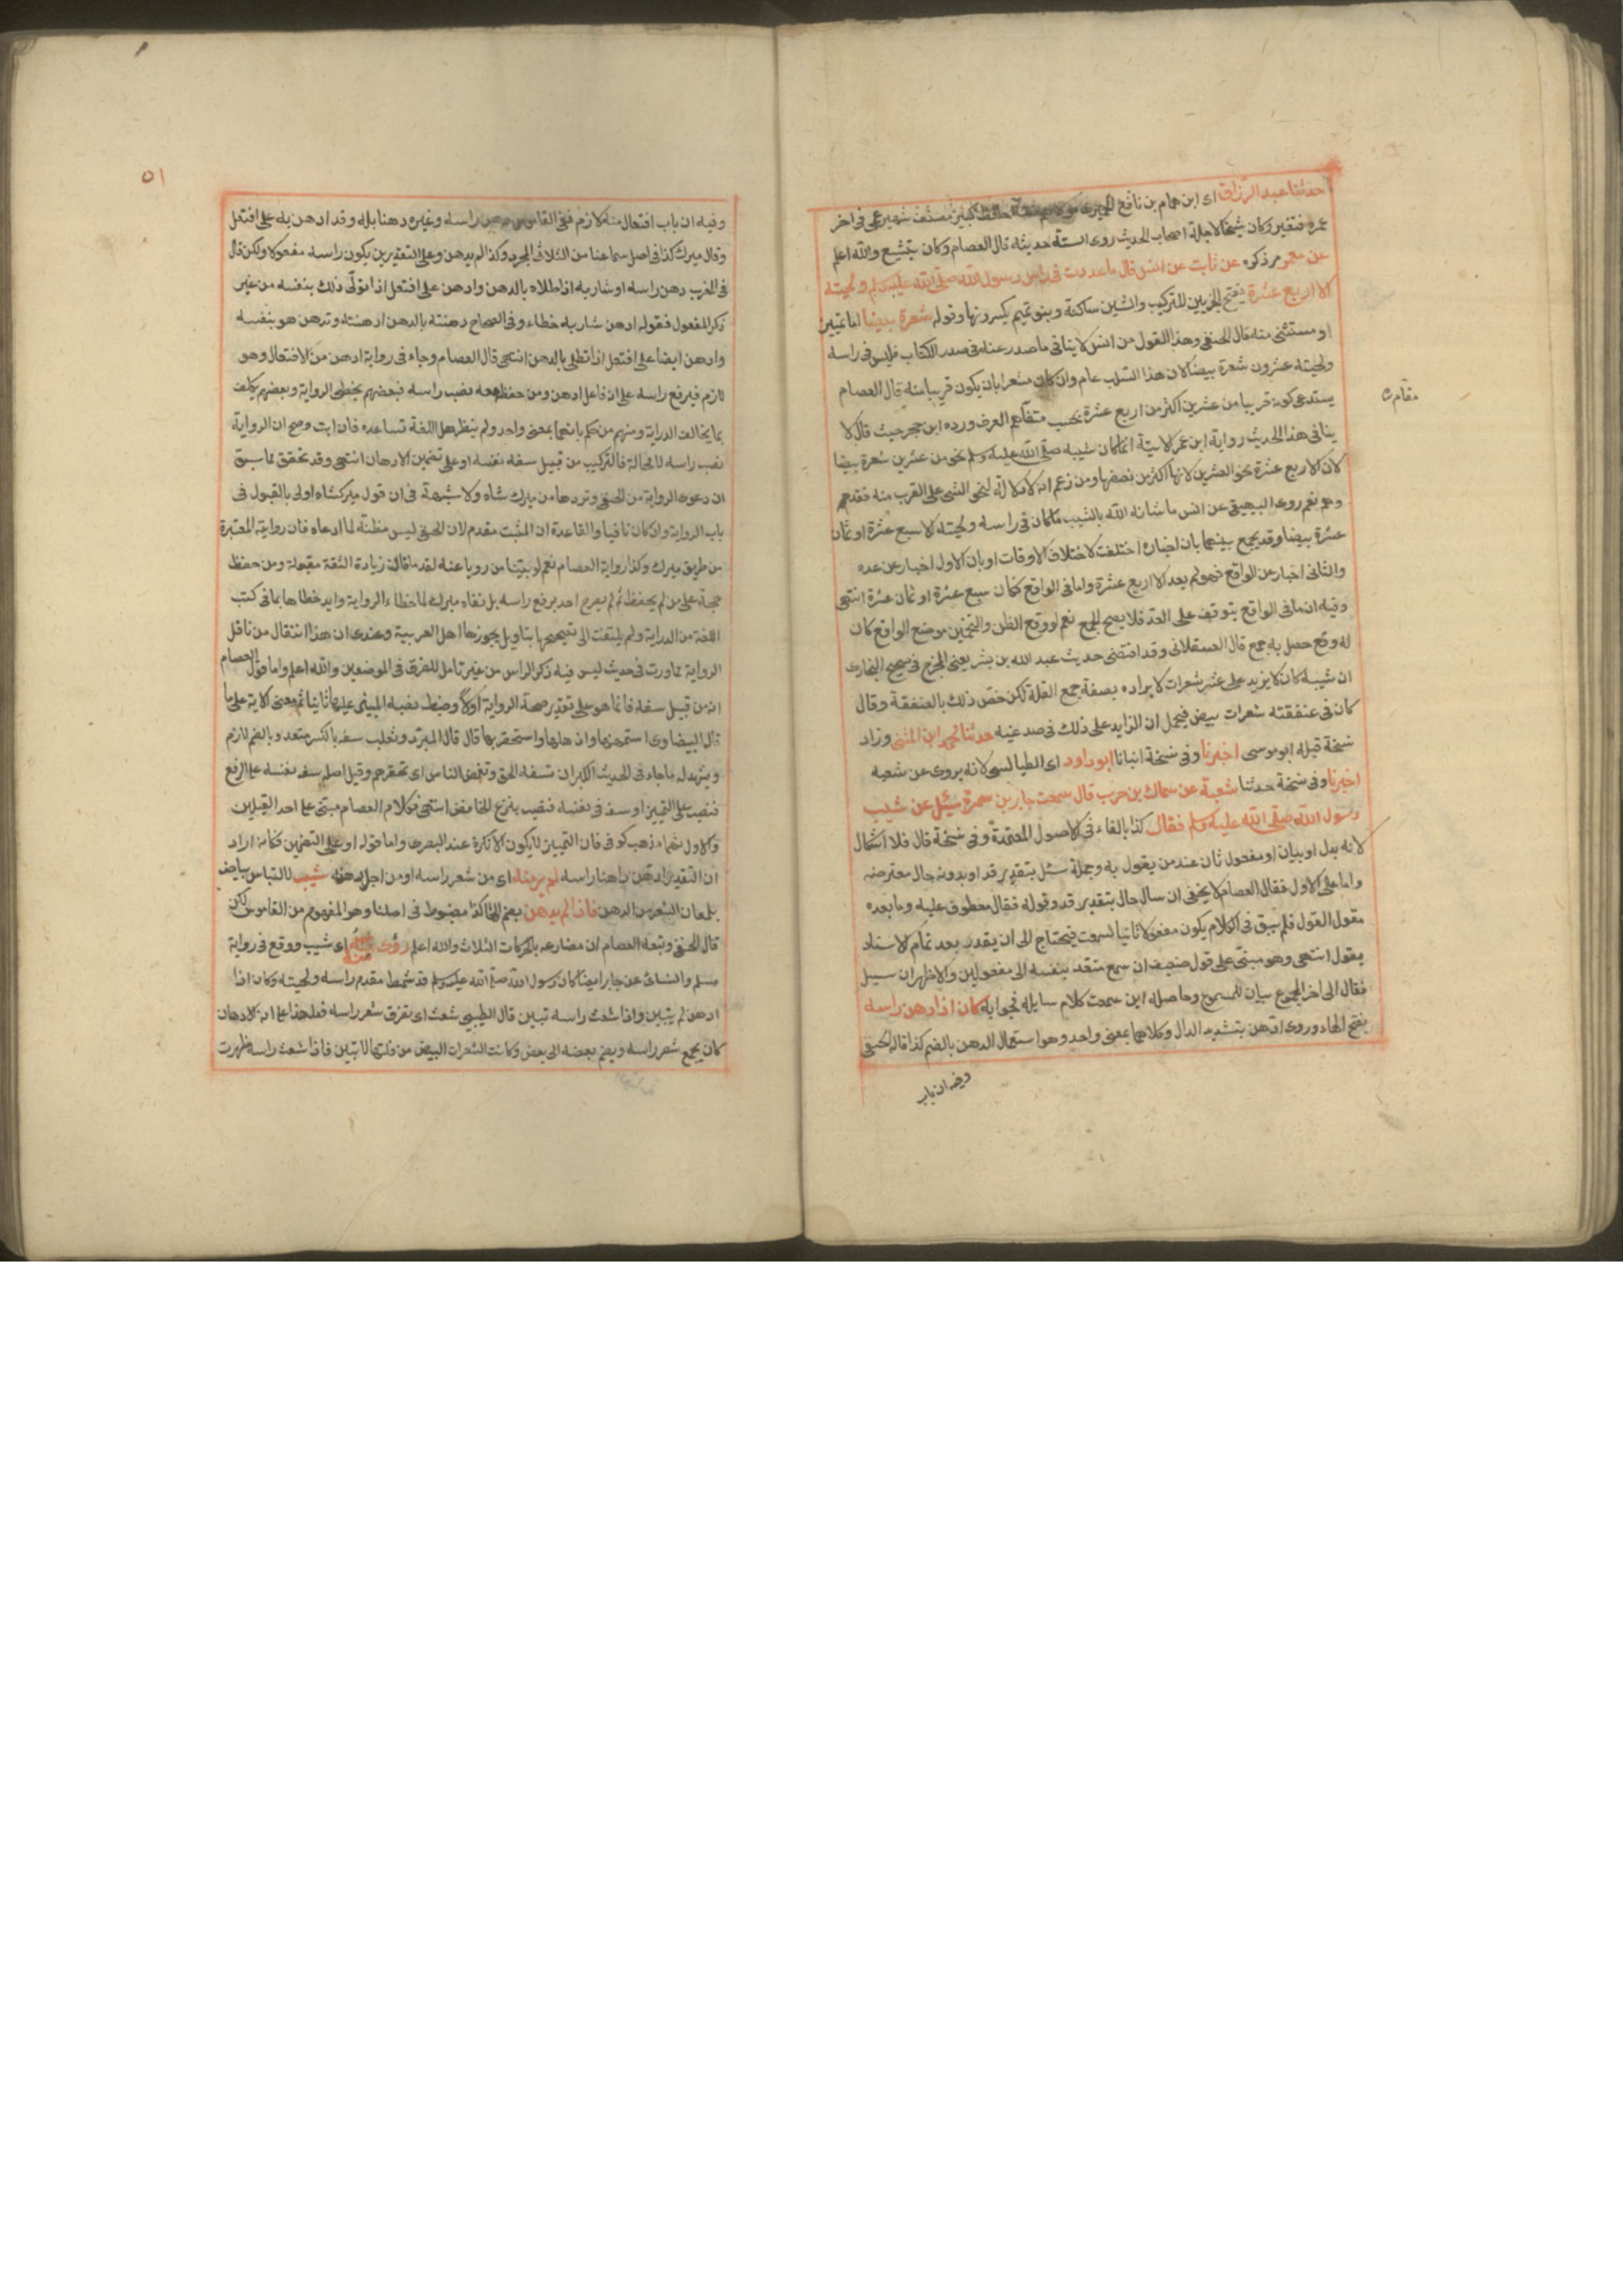 حدثنا عبد الرزاق اى ابن همام بن نافع الحميرى مولاهم حافظ كبير مصنف شهير عمى فى اخر
عمره فتغير وكان شيخا لاجلة اصحاب الحديث روى الستة حديثه قال العصام وكان يتشيع والله اعلم
عن معمر مر ذكره عن ثابت عن انس قال ما عددت فى راس رسول الله صلى الله عليه وسلم ولحيته
الا اربع عشرة بفتح الجزيين للتركيب والشين ساكنة وبنو تميم يكسرونها وقوله شعرة بيضا اما تمييز
او مستثنى منه قال الحنفى وهذا القول من انس لا ينافى ما صدر عنه فى صدر الكتاب فليس فى راسه
ولحيته عشرون شعرة بيضا لان هذا السلب عام وان كان مشعرا بان يكون قريبا منه قال العصام
يستدعى كونه قريبا من عشرين اكثر من اربع عشرة بحسب متفاهم العرف ورده ابن حجر حيث قال لا
ينافى هذا الحديث رواية ابن عمر الاتية انما كان شيبه صلى الله عليه وسلم نحو من عشرين شعرة بيضا
لان الاربع عشرة نحو العشرين لانها اكثر من نصفها ومن زعم انه لا دلالة لنحو الشى على القرب منه فقد وهم
وهم نعم روى البيهقى عن انس ما شانه الله بالشيب ما كان فى راسه ولحيته الا سبع عشرة او ثمان
عشرة بيضا وقد يجمع بينهما بان اخباره اختلفت لاختلاف الاوقات او بان الاول اخبار عن عده
والثانى اخبار عن الواقع فهو لم يعد الا اربع عشرة واما فى الواقع فكان سبع عشرة او ثمان عشرة انتهى
وفيه ان ما فى الواقع يتوقف على العد فلا يصح الجمع نعم لو وقع الظن والتخمين موضع الواقع كان
له وقع حصل به جمع قال العسقلانى وقد اقتضى حديث عبد الله بن بشر يعنى المخرج فى صحيح البخارى
ان شيبه كان لا يزيد على عشر شعرات لايراده بصيغة جمع القلة لكن خص ذلك بالعنفقة وقال
كان فى عنفقته شعرات بيض فيحمل ان الزايد على ذلك فى صدغيه حدثنا محمد ابن المثنى وزاد
نسخة قبله ابو موسى اخبرنا وفى نسخة انبانا ابو داود اى الطيالسى لانه يروى عن شعبه
اخبرنا وفى نسخة حدثنا شعبة عن سماك بن حرب قال سمعت جابر بن سمرة سئل عن شيب
رسول الله صلى الله عليه وسلم فقال كذا بالفاء فى الاصول المعتمدة وفى نسخة قال فلا اشكال
لانه بدل او بيان او مفعول ثان عند من يقول به وجملة سئل بتقدير قد او بدونه حال معترضه
واما على الاول فقال العصام لا يخفى ان سال حال بتقدير قد وقوله فقال معطوف عليه وما بعده
مقول القول فلم يبق فى الكلام يكون مفعولا ثانيا لسمعت فيحتاج الى ان يقدر بعد تمام الاسناد
يقول انتهى وهو مبنى على قول ضعيف ان سمع متعد بنفسه الى مفعولين والاظهر ان سبيل
فقال الى اخر المجموع بيان للمسموع وحاصله اين سمعت كلام سايله فجوابه كان اذا ادهن راسه
بفتح الهاء وروى ادهن بتشديد الدال وكلاهما بمعنى واحد وهو استعمال الدهن بالضم كذا قاله الحنفى
وفيه ان باب
مقام
٥١
وفيه ان باب افتعال منه لازم ففى القاموس دهن راسه وغيره دهنا بله وقد ادهن به على افتعل
وقال ميرك كذا فى اصل سماعنا من الثلاثى المجرد وكذا لم يدهن وعلى التقديرين يكون راسه مفعولا ولكن قال
فى المغرب دهن راسه او شاربه اذا طلاه بالدهن وادهن على افتعل اذا تولى ذلك بنفسه من غير
ذكر المفعول فقوله ادهن شاربه خطاء وفى الصحاح دهنته بالدهن ادهنته وتدهن هو بنفسه
وادهن ايضا على افتعل اذا تطلى بالدهن انتهى قال العصام وجاء فى رواية ادهن من الافتعال وهو
لازم فيرفع راسه على انه فاعل ادهن ومن حفظ معه نصب راسه فبعضهم يخطى الرواية وبعضهم يكلف
بما يخالف الدراية ومنهم من حكم بانهما بمعنى واحد ولم ينظر هل اللغة تساعده فان ابت وصح ان الرواية
نصب راسه لا محالة فالتركيب من قبيل سفه نفسه او على تضمين الادهان انتهى وقد تحقق بما سبق
ان دعوى الرواية من الحنفى وتردها من ميرك شاه ولا شبهة فى ان قول ميركشاه اولى بالقبول فى
باب الرواية وان كان نافيا والقاعدة ان المثبت مقدم لان الحنفى ليس مظنة لما ادعاه فان رواية المعتبرة
من طريق ميرك وكذا رواية العصام نعم لو بيتنا من رويا عنه لقد ما قال زيادة الثقة مقبولة ومن حفظ
حجة على من لم يحفظ ثم لم يصرح احد برفع راسه بل نفاه ميرك لما خطاء الرواية وايد خطاها بما فى كتب
اللغة من الدراية ولم يلتفت الى تصحيحها بتاويل يجوزها اهل العربية وعندى ان هذا انتقال من ناقل
الرواية بما ورت فى حديث ليس فيه ذكر الراس من غير تامل للفرق فى الموضعين والله اعلم واما قول العصام
انه من قبيل سفه فانما هو على تقدير صحة الرواية اولا وضبط نصبه المبنى عليها ثانيا ثم معنى الاية على ما
قال البيضاوى استمهنها واذلها واستخف بها قال قال المبرد وثعلب سفه بالكسر متعد وبالضم لازم
ويشهد له ما جاء فى الحديث الكبر ان تسفه الحق وتغمض الناس اى تحقرهم وقيل اصله سفه نفسه على الرفع
فنصب على التمييز او سفه فى نفسه فنصب بنزع الخافض انتهى فكلام العصام مبنى على احد القيلين
والاول شاذ ذهب كوفى فان التمييز لا يكون الا نكرة عند البصرى واما قوله او على التضمين فكانه اراد
ان التقدير ادهن داهنا راسه لم ير منه اى من شعر راسه او من اجل دهنه شيب لالتباس بياضه
بلمعان الشعر من الدهن فاذا لم يدهن بضم الهاء كذا مضبوط فى اصلنا وهو المفهوم من القاموس لكن
قال الحنفى وتبعه العصام ان مضارعه بالحركات الثلاث والله اعلم رؤى منه اى شيب ووقع فى رواية
مسلم والنسائى عن جابر ايضا كان رسول الله صلى الله عليه وسلم قد شمط مقدم راسه ولحيته وكان اذا
ادهن لم يتبين واذا شعث راسه تبين قال الطيبى شعث اى تفرق شعر راسه فدل هذا على انه الادهان
كان يجمع شعر راسه ويضم بعضه الى بعض وكانت الشعرات البيض من قلتها لا تبين فاذا شعث راسه ظهرت